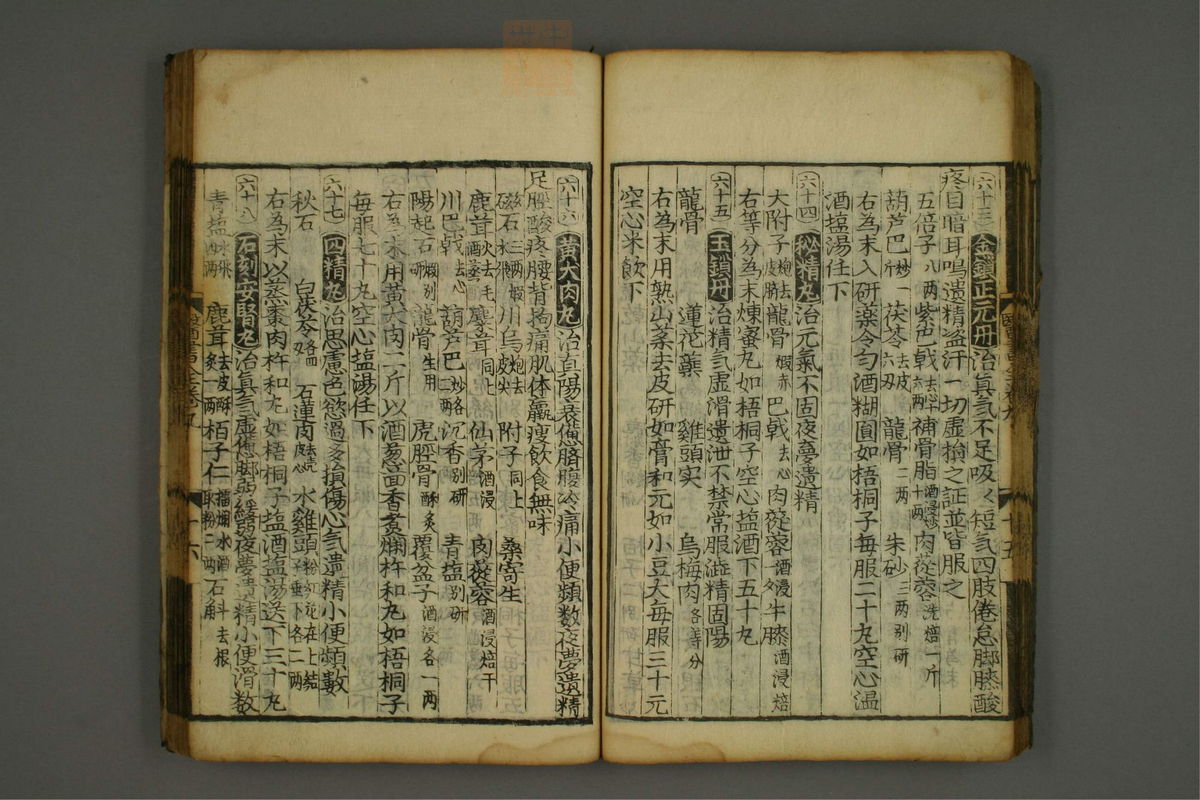 六十三 金鎖正元丹 治真氣不足吸〻短氣四肢倦怠脚膝酸
疼目暗耳鳴遺精盗汗一切虛損之証並皆服之
五倍子八兩 紫巴戟去心十六兩 補骨脂酒浸炒十兩 肉蓯蓉洗焙一斤
葫芦巴炒一斤 茯苓去皮六刄 龍骨二兩 朱砂三兩別研
右為末入研薬令勻酒糊圓如梧桐子每服二十丸空心温
酒塩湯任下
六十四 秘精丸 治元氣不固夜夢遺精
大附子炮去皮臍 龍骨煅赤 巴戟去心 肉蓯蓉酒浸一夕 牛膝酒浸焙
右等分為末煉蜜丸如梧桐子空心塩酒下五十丸
六十五 玉鎖丹 治精氣虛滑遺泄不禁常服澁精固陽
龍骨 蓮花蘂 雞頭实 烏梅肉各等分
右為末用熟山薬去皮研如膏和元如小豆大每服三十元
空心米飲下
六十六 黄犬肉丸 治真陽衰憊臍腹冷痛小便頻数夜夢遺精
足脛酸疼腰背拘痛肌体羸瘦飲食無味
磁石三兩煅水飛 川烏炮去皮尖 附子同上 桑寄生
鹿茸火去毛酒 麋茸同上 仙茅酒浸 肉蓯蓉酒浸焙干
川巴戟去心 葫芦巴炒各二兩 沉香別研 青塩別研
陽起石煅別研 龍骨生用 虎脛骨酥炙 覆盆子酒浸各一兩
右為末用黄犬肉二斤以酒葱茴香煑爛杵和丸如梧桐子
每服七十丸空心塩湯任下
六十七 四精丸 治思慮色慾過多損傷心氣遺精小便頻數
秋石 白茯苓各四刄 石蓮肉去売心 水雞頭粉 花在上結子垂下各二兩
右為末以蒸棗肉杵和丸如梧桐子塩酒塩湯送下三十丸
六十八 石刻安腎丸 治真氣虛憊脚膝緩弱夜夢遺精小便滑数
青塩水飛四兩 鹿茸去皮酥炙一兩 栢子仁擂爛水酒取粉二兩 石斛去根